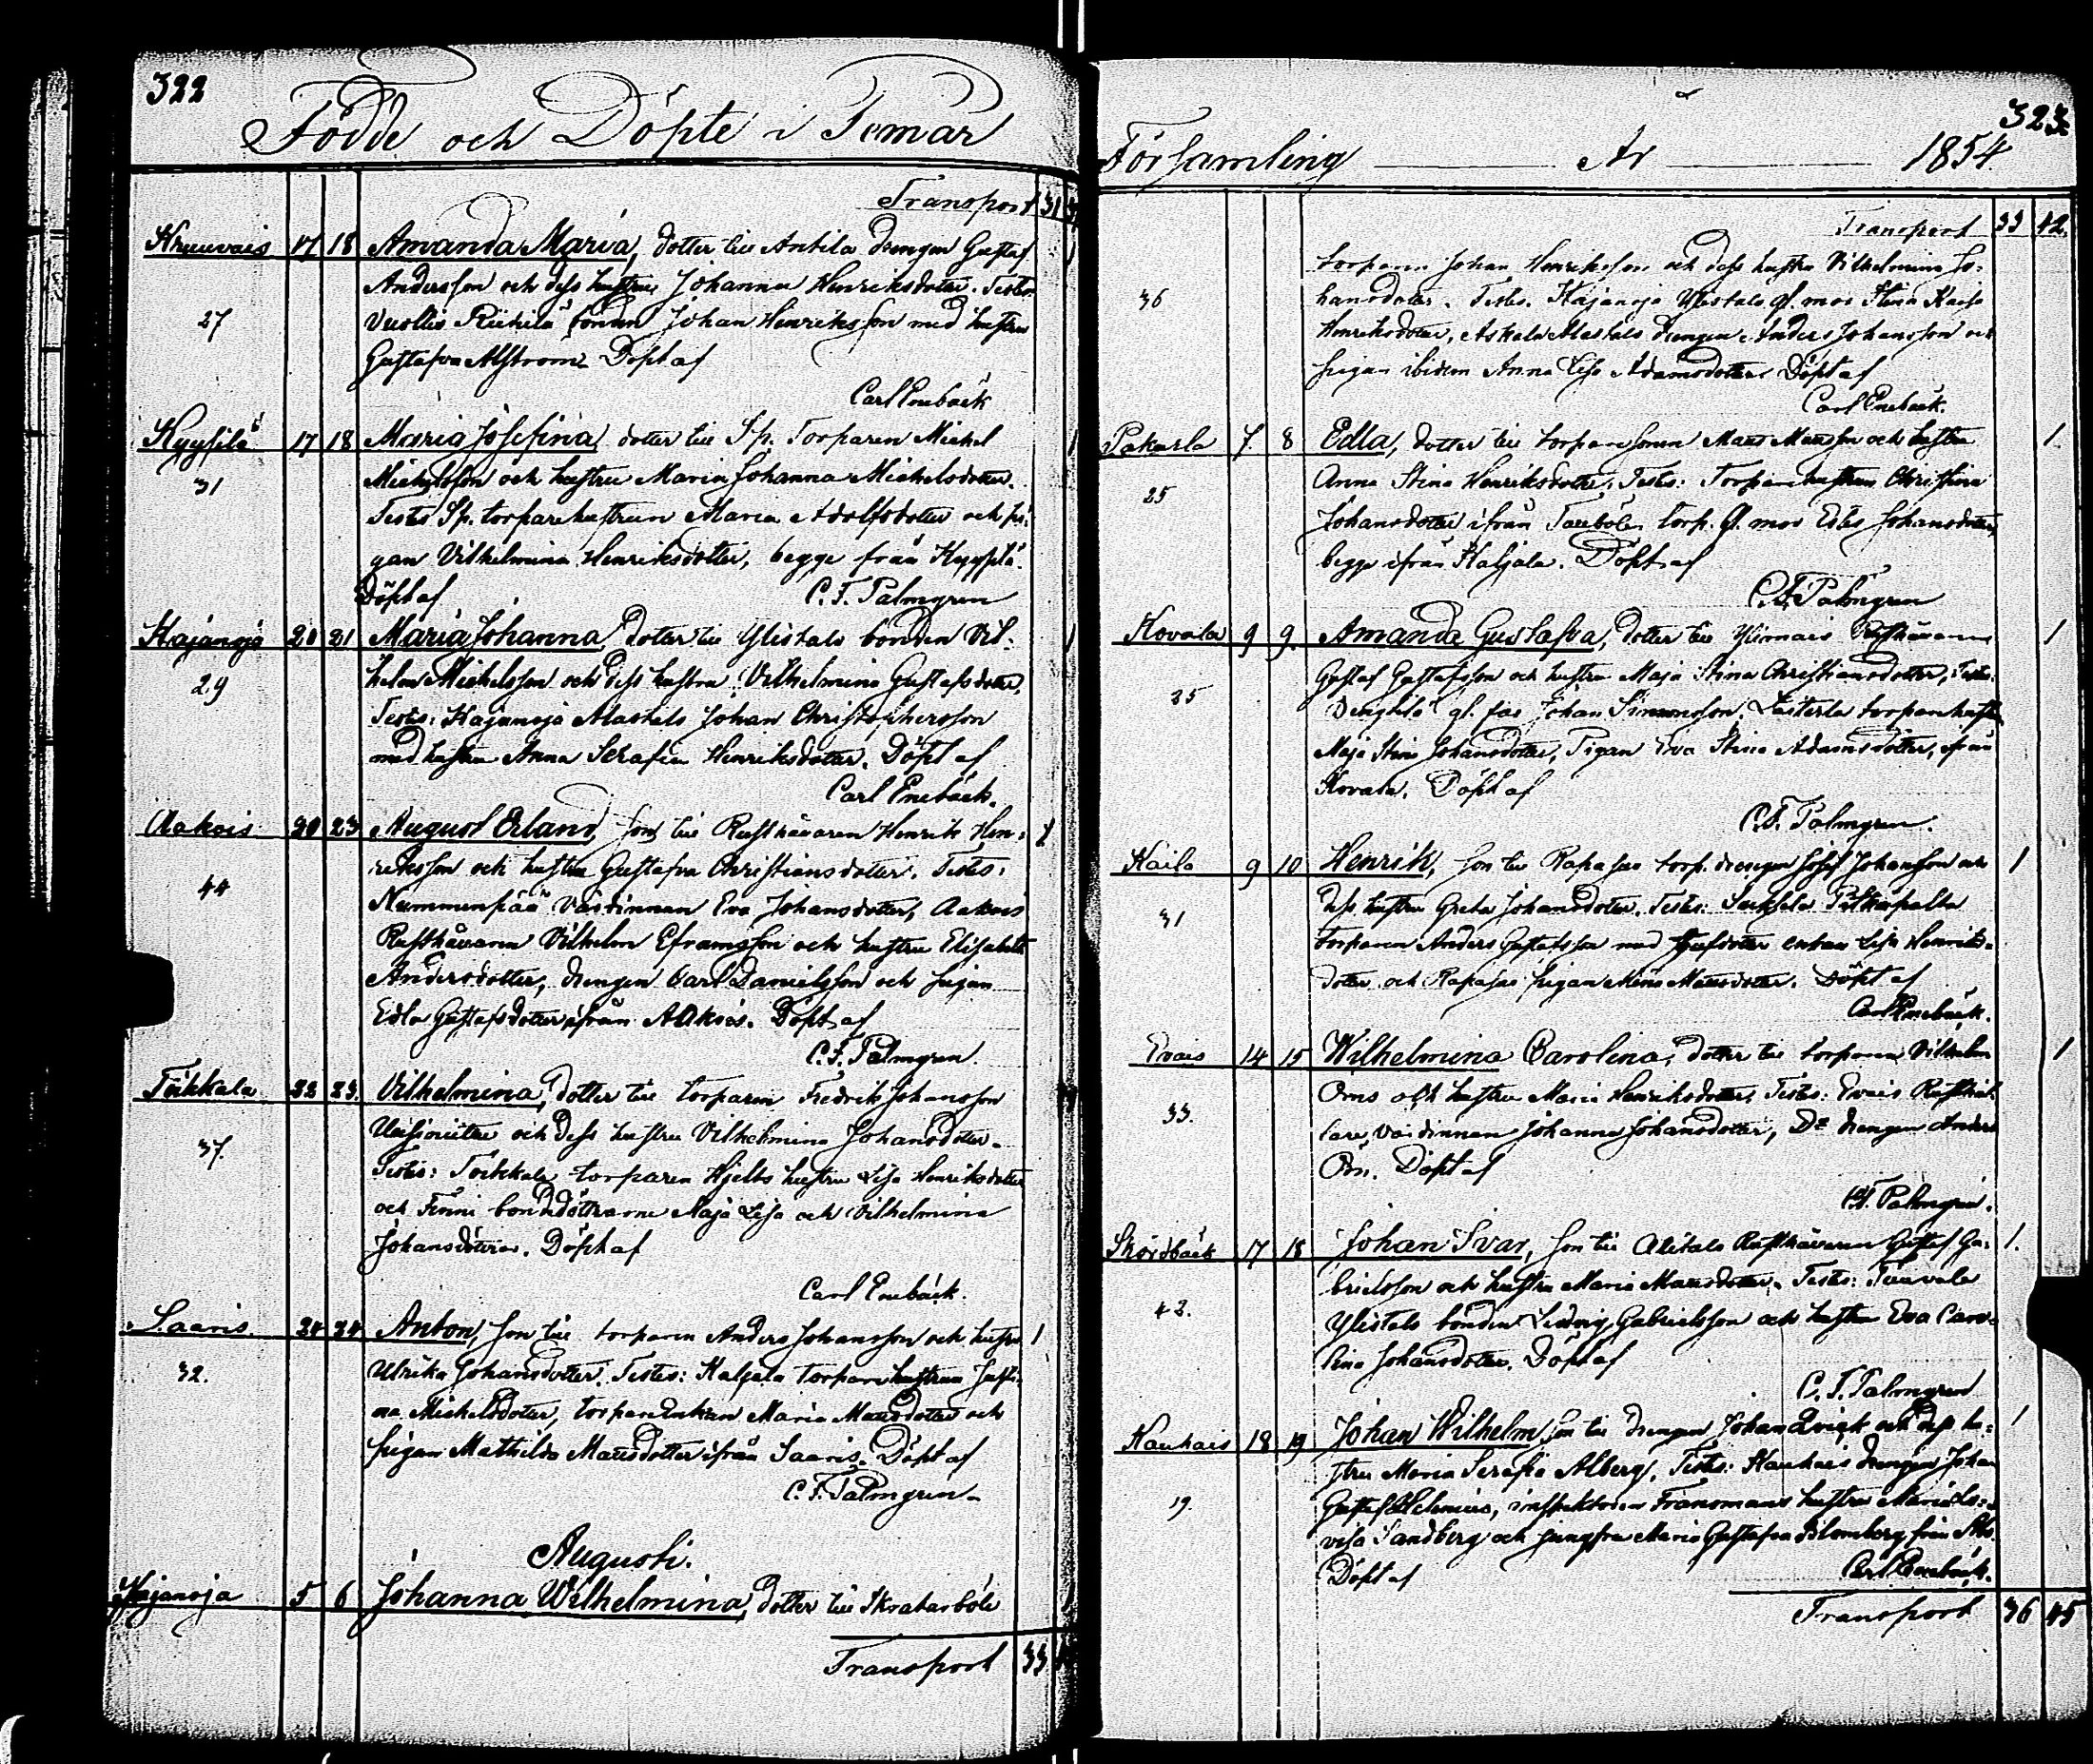 322
Födde och Döpte i Pemar
Transport 31
Kruuvais 17 18 Amanda Maria, dotter till Antila drengen Gustaf
Andersson och dess hustru Johanna Henriksdotter. Testes
27 Vuollis Riihilä bonden Johan Henriksson med hustru
Gustafva Alstrom. Döpt af
Carl Enebäck
Kyysilä 17 18 Maria Josefina dotter till Sp. Torparen Mickel
31 Mickelsson och hustru Maria Johanna Mickelsdotter.
Testes Sp. torparehustrun Maria Adolfsdotter och pi-
gan Vilhelmina Henriksdotter, begge från Kyysilä.
Döpt af C. F. Palmgren
Kajanoja 20 21 Maria Johanna dotter till Ylistalo bonden Vil-
29 helm Mickelsson och dess hustru Vilhelmina Gustafsdotter,
Testes: Kajanoja Alastalo Johan Christophersson
med hustru Anna Serafia Henriksdotter. Döpt af
Carl Enebäck.
Aakois 20 23 August Erland, son till Rusthållaren Henrik Hen- 1
riksson och hustru Gustafva Christiansdotter. Testes:
44 Nummenpää värdinnan Eva Johansdotter, Aakois
Rusthållaren Vilhelm Eframsson och hustru Elisabeth
Andersdotter, drengen Carl Danielsson och pigan
Edla Gustafsdotter ifrån Aakois. Döpt af
C. F. Palmgren.
Tükkala 22 23. Vilhelmina, dotter till torparen Fredrik Johansson
37. och dess hustru Vilhelmina Johansdotter.
Testes: Torkkala torparen Hjelts hustru Lisa Henriksdotter
och Finni bondedöttrarne Maja Lisa och Vilhelmina
Johansdöttrar. Döpt af
Carl Enebäck.
Saaris 24 24 Anton, son till torparen Anders Johansson och hustru 1
32. Ulrika Johansdotter. Testes: Kaljala torparehustrun Justi-
na Mickelsdotter, torparenkan Maria Mattsdotter och
pigan Mathilda Mattsdotter ifrån Saaris. Döpt af
C. F. Palmgren.
Augusti.
Kajanoja 5 6 Johanna Wilhelmina, dotter till Skrabarböle
Transport 33
323.
Församling År 1854.
Transport 33 42.
torparen Johan Henriksson och dess hustru Vilhelmina Jo-
36 hansdotter. Testes. Kajanoja Ylistalo gl. mor Stina Kaisa
Henriksdotter, Askala Alastalo drengen Anders Johansson och
pigan ibidem Anna Lisa Adamsdotter. Döpt af
Carl Enebäck.
Pakarla 7. 8 Edla, dotter till torparesonen Mats Matsson och hustru 1.
25 Anna Stina Henriksdotter. Testes: Torparehustrun Christina
Johansdotter ifrån Tauböle torp. gl. mor Edla Johansdotter,
begge ifrån Kaljala. Döpt af
C. F. Palmgren
Kovala 9 9. Amanda Gustafva, dotter till Ylimais Rusthållaren 1
35 Gustaf Gustafsson och hustru Maja Stina Christiansdotter, Testes:
gl. far Johan Simonsson, torparehustru
Maja Stina Johansdotter, Pigan Eva Stina Adamsdotter, ifrån
Kovala. Döpt af
C. F. Palmgren.
Kaila 9 10 Henrik, son till Rapasas torp. drengen Josef Johansson och 1
31 dess hustru Greta Johansdotter. Testes:
torparen Anders Gustafsson med enkan Lisa Henriks-
dotter och Rapasas pigan Mina Mattsdotter. Döpt af
Carl Enebäck.
Evais 14 15 Wilhelmina Carolina, dotter till torparen Vilhelm 1
33. Örns och hustru Maria Henriksdotter, Testes: Evais Rusthål-
lare värdinnan Johanna Johansdotter, Do drengen Anders
Örn. Döpt af
C. F. Palmgren.
Skördbäck 17 18 Johan Ivar, son till Alitalo Rusthållaren Gustaf Ga- 1.
42. brielsson och hustru Maria Mattsdotter. Testes: Tuuvala
Ylistalo bonden Ludvig Gabrielsson och hustru Eva Caro-
lina Johansdotter. Döpt af
C. F. Palmgren
Kauhais 18 19 Johan Wilhelm son till drengen Johan Qvick och dess hu- 1
stru Maria Serafia Alberg. Testes: Kauhais drengen Johan
19. Gustaf Helenius, inspektoren Fransmans hustru Maria Lo-
visa Sandberg och jungfru Maria Gustafva Blomberg från Åbo.
Döpt af Carl Enebäck.
Transport 36 45